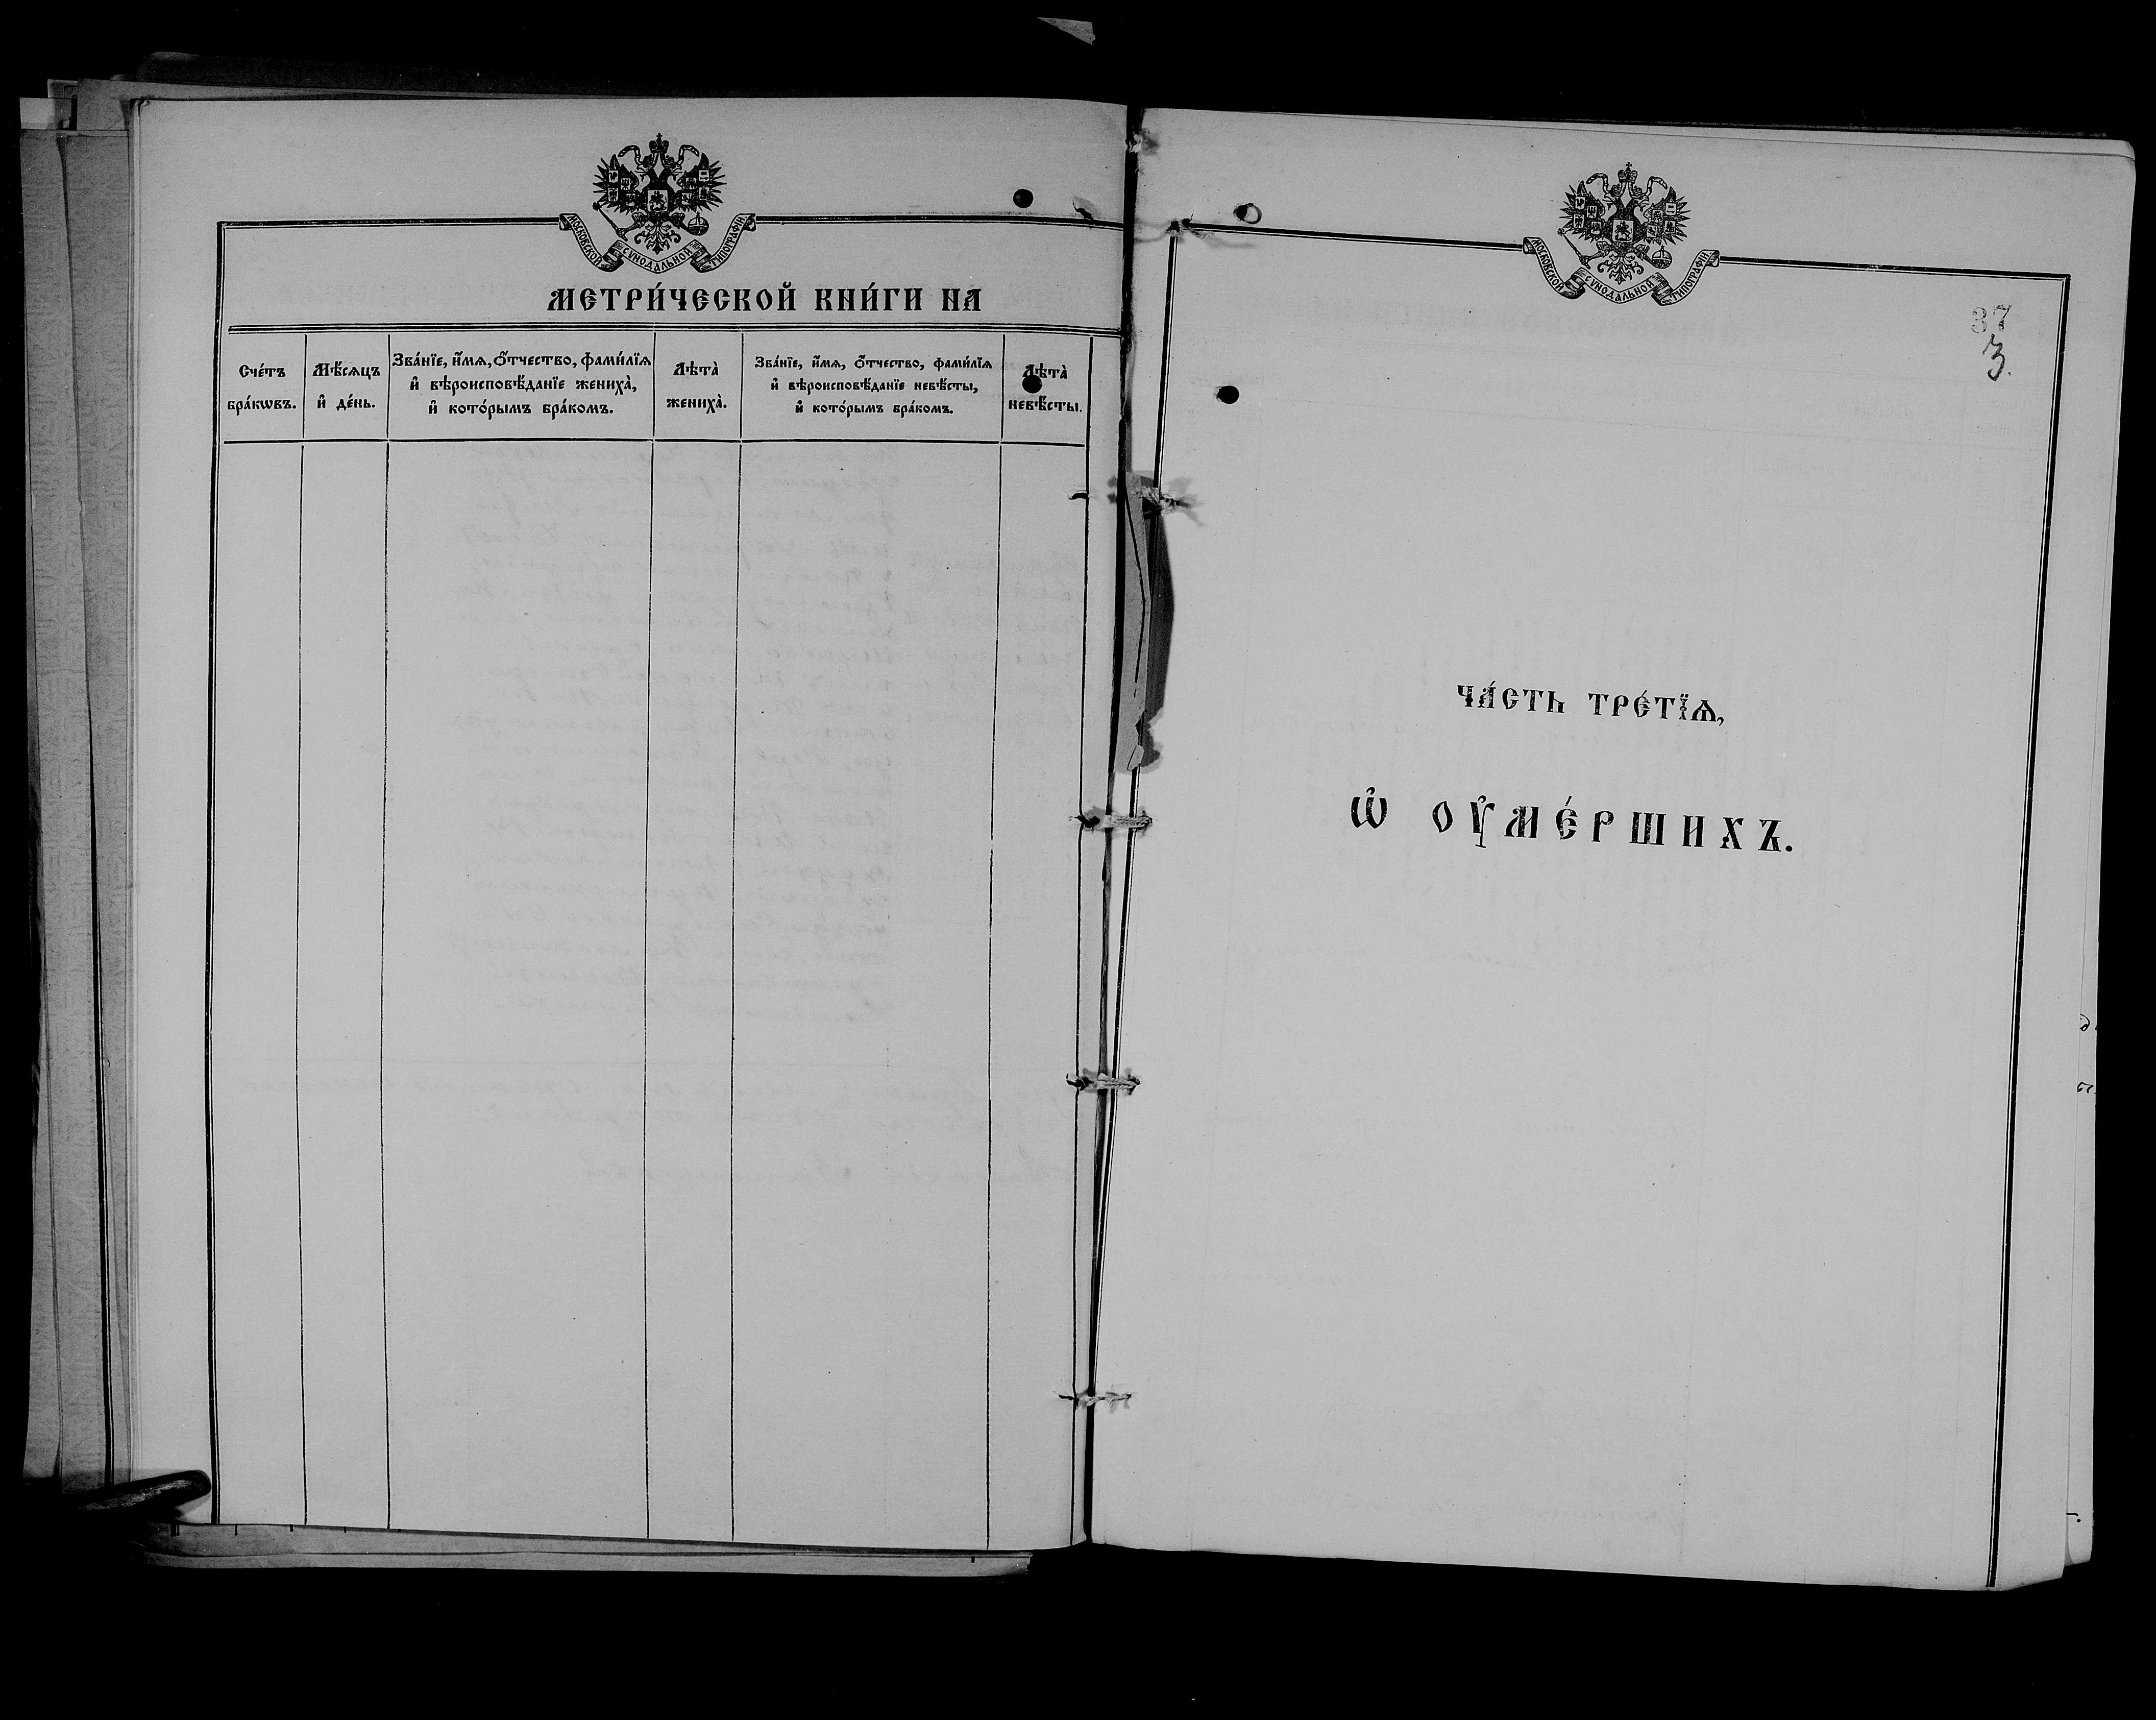 МОСКОВСКОЙ СѴНОДАЛЬНОЙ ТИПОГРАФІИ
МЕТРИ́ЧЕСКОЙ КНИ́ГИ НА
Сче́тъ
бра́кѡвъ.
Мѣ́сяцъ
и҆ де́нь.
Зва́нїе, и҆́мѧ, ѻ҆́тчество, фами́лїѧ
и҆ вѣроисповѣ́данїе жениха̀,
и҆ кото́рымъ бра́комъ.
Лѣта̀
жениха̀.
Зва́нїе, и҆́мѧ, ѻ҆́тчество, фами́лїѧ
и҆ вѣроисповѣ́данїе невѣ́сты,
и҆ кото́рымъ бра́комъ.
Лѣта̀
невѣ́сты.
МОСКОВСКОЙ СѴНОДАЛЬНОЙ ТИПОГРАФІИ
37
3.
ЧА́СТЬ ТРЕ́ТЇѦ,
Ѡ҆ ОУ҆МЕ́РШИХЪ.